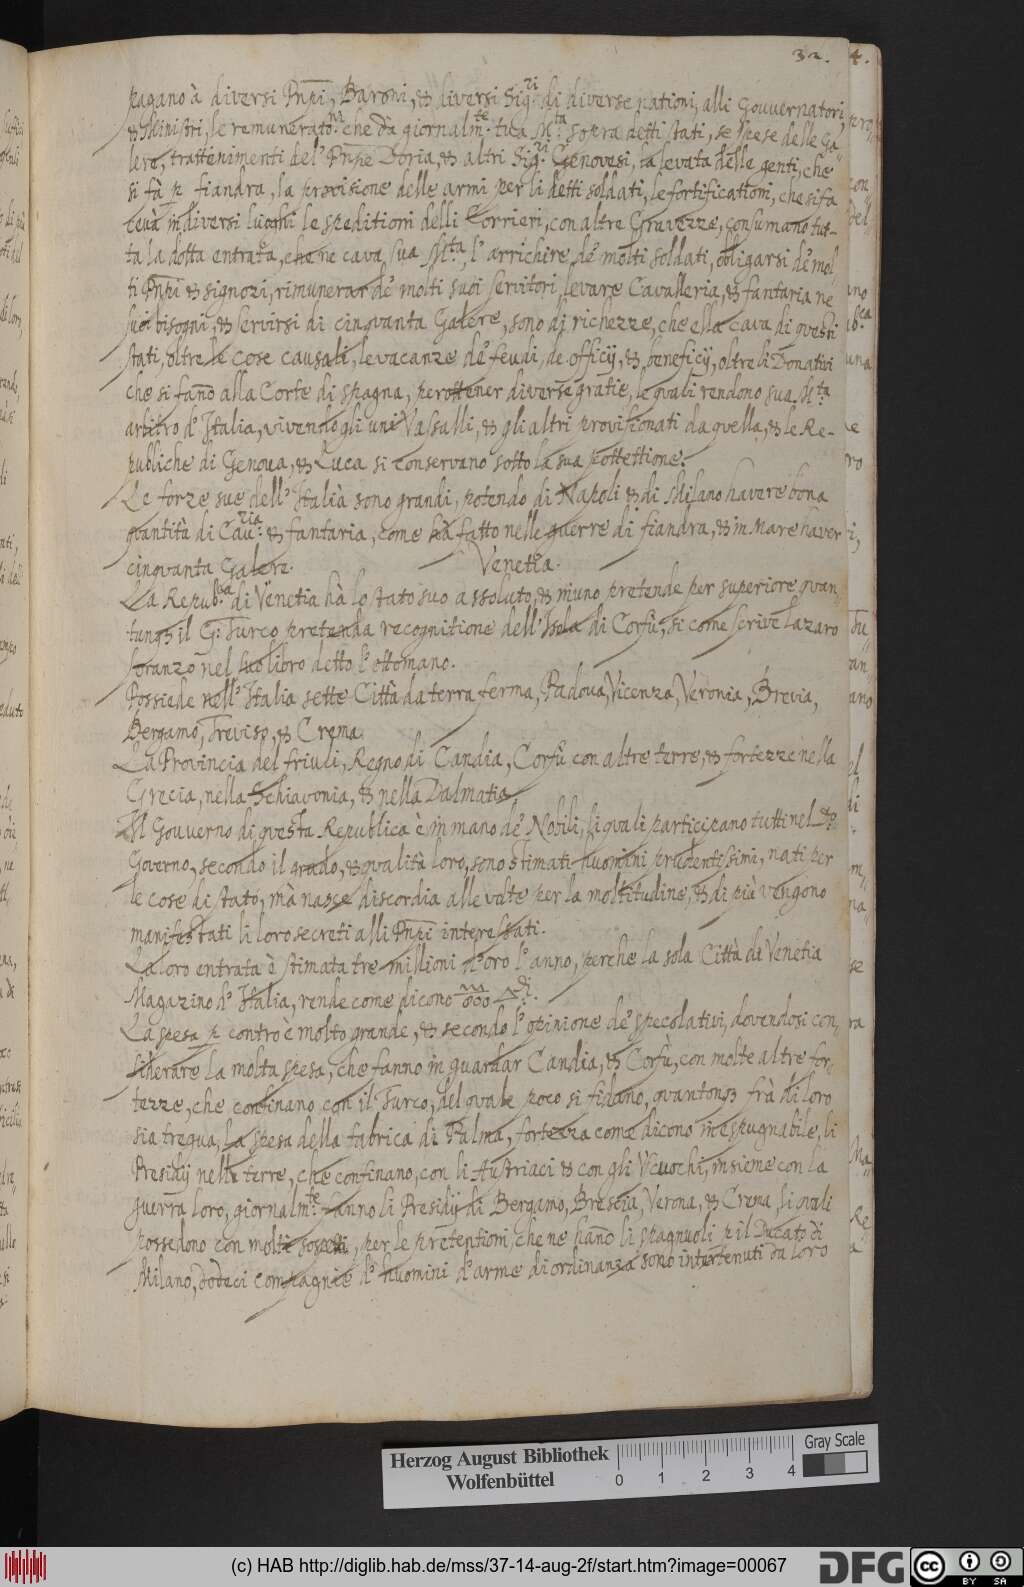 32.
pagano à diversi Prīpi, Baroni, & diversi Sig.ri di diverse nationi, alli Gouuernatori,
& Ministri, le remunerat.ni che dà giornalm.te sua M.tà sopra detti stati, le spese delle Ga„
lere, trattenimenti del' Prīpe Doria, & altri Sig.ri Genovesi, la levata delle genti, che
si fà p fiandra, la provisione delle armi per li detti soldati, le fortificationi, che si fa
ceva in diversi luoghi le speditioni delli Corrieri, con altre Gravezze, consumano tut-
ta la dotta entrata, che ne cava sua M.tà, l'arrichire de' molti soldati, obligarsi de' mol
ti Prīpi & signori, rimunerar de' molti suoi servitori, levare Cavalleria, & fantaria ne
suoi bisogni, & servirsi di cinquanta Galere, sono di richezze, che ella cava di questi
stati, oltre le cose causali, le vacanze de' feudi, de officij, & beneficij, oltre li Donativi
che si fano alla Corte di spagna, per ottener diverse gratie, le quali rendono sua M.tà
arbitro d'Italia, vivendo gli uni Vassalli, & gli altri provisionati da quella, & le Re-
publiche di Genova, & Luca si conservano sotto la sua pottettione.
Le forze sue dell'Italia sono grandi, potendo di Napoli & di Milano havere bona
quantità di Cau.ria & fantaria, come hà fatto nelle guerre di fiandra, & in Mare haver
cinquanta Galere.
Venetia.
La Repub.ca di Venetia hà lo stato suo assoluto, & niuno pretende per superiore quan„
tunq3 il G: Turco pretenda recognitione dell'Isola di Corfù, si come scrive Lazaro
soranzo nel suo libro detto l'ottomano.
Possiede nell'Italia sette Città da terra ferma, Padova, Vicenza, Veronia, Brevia,
Bergamo, Treviso, & Crema.
La Provincia del friuli, Regno di Candia, Corfù con altre terre, & fortezze nella
Grecia, nella Schiavonia, & nella Dalmatia.
Il Gouuerno di questa Republica è in mano de' Nobili, li quali participano tutti nel d.o
Governo, secondo il grado, & qualità loro, sono stimati huomini prudentissimi, nati per
le cose di stato, mà nasce discordia alle volte per la moltitudine, & di più vengono
manifestati li loro secreti alli Prīpi interessati.
La loro entrata è stimata tre millioni d'oro l'anno, perche la sola Città di Venetia
Magazino d'Italia, rende come dicono
La spesa p contro è molto grande, & secondo l'opinione de' specolativi, dovendosi con„
siderare la molta spesa, che fanno in guardar Candia, & Corfù, con molte altre for„
tezze, che confinano con il Turco, del quale poco si fidano, quantonq3 frà di loro
sia tregua, la spesa della fabrica di Palma, fortezza come dicono inespugnabile, li
Presidij nelle terre, che confinano, con li Austriaci & con gli Vcuochi, insieme con la
guerra loro, giornalm.te fanno li Presidij di Bergamo, Brescia, Verona, & Crema li quali
possedono con molti sospetti, per le pretentioni, che ne hano li spagnuoli p il Ducato di
Milano, dodeci compagnie d'huomini d'arme di ordinanza sono intertenuti da loro
Herzog August Bibliothek
Wolfenbüttel
0 1 2 3 4
Gray Scale
(c) HAB http://diglib.hab.de/mss/37-14-aug-2f/start.htm?image=00067
DFG
cc BY SA